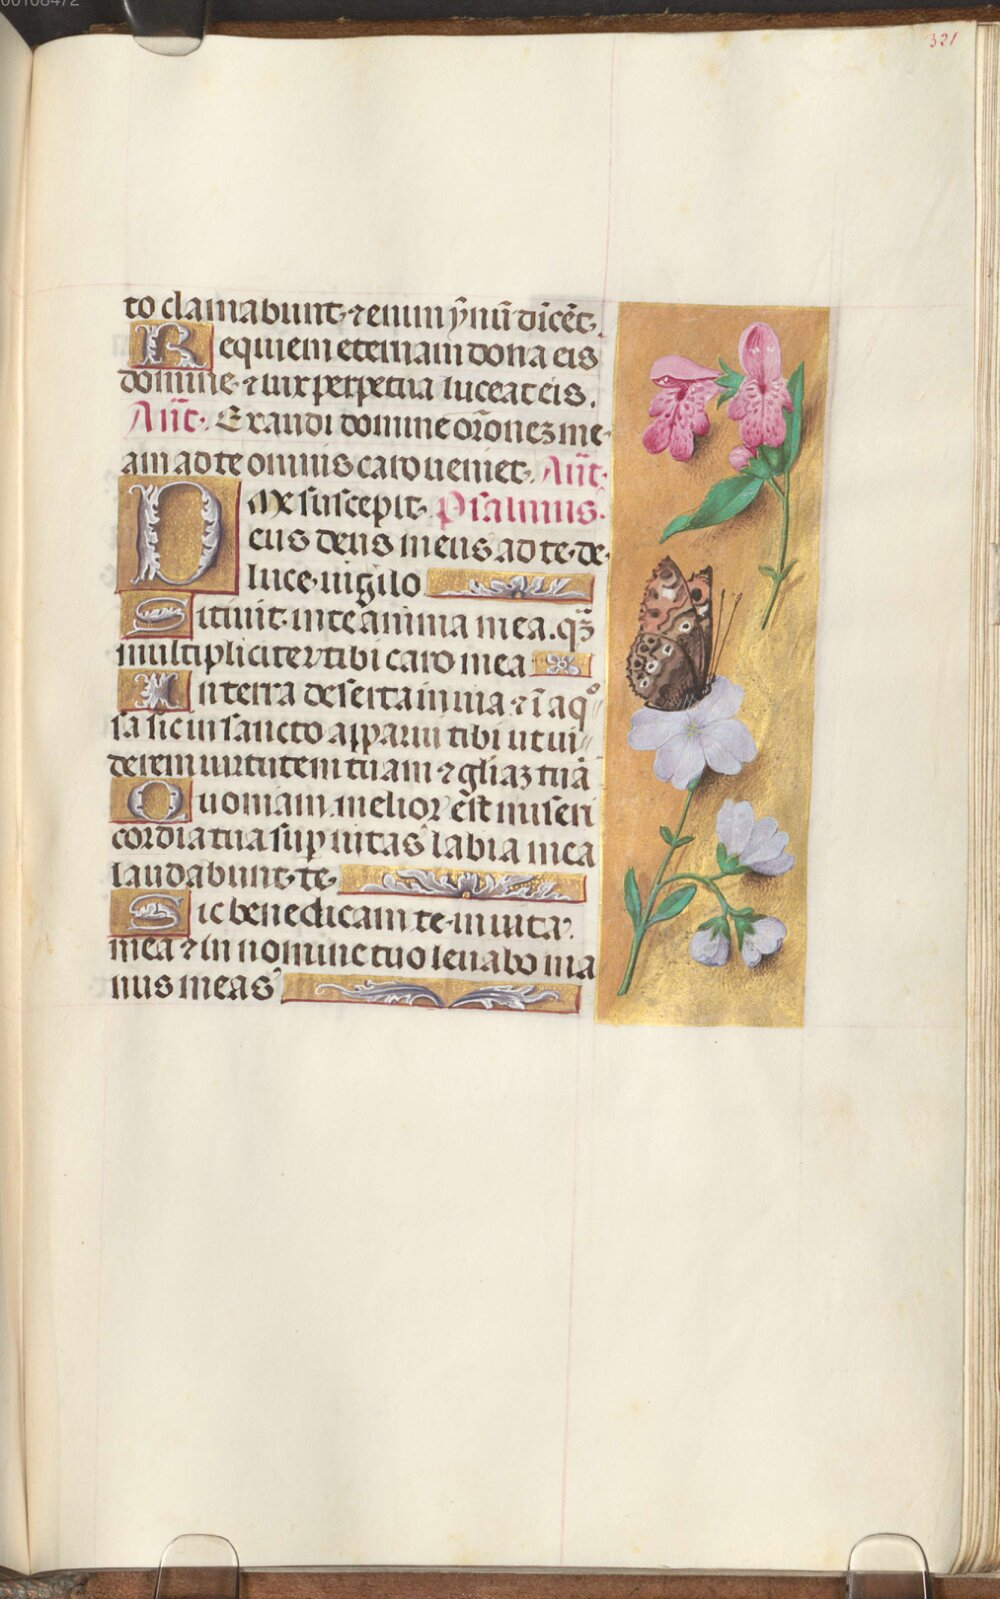 321
to clamabunt · ⁊ enim ȳnū dicēt.
Requiem eternam dona eis
domine · ⁊ lux perpetua luceat eis.
Añt. Exaudi domine orōnez me
am ad te omnis caro veniet. Añt.
Me suscepit. Psalmus.
Deus deus meus ad te · de
luce · vigilo
Sitivit · in te anima mea. qz̄
multipliciter tibi caro mea
In terra deserta invia · ⁊ ī aqo
sa sic in sancto apparui tibi ut vi
derem virtutem tuam ⁊ gliaz tuā
Quoniam melior est miseri
cordia tua sup vitas labia mea
laudabunt · te.
Sic benedicam te · in vita
mea ⁊ in nomine tuo levabo ma
nus meas